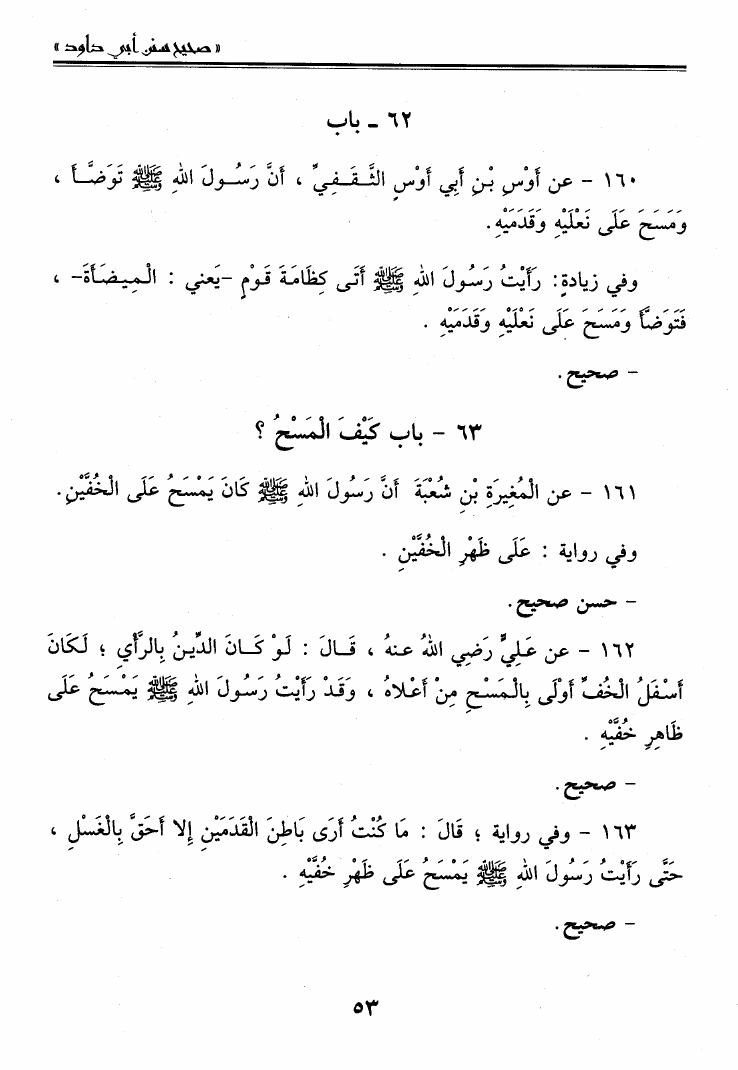 « صحيح سنن أبي داود »
٦٢ ـ باب
١٦٠ - عن أَوْسِ بْنِ أَبِي أَوْسٍ الثَّـقَـفِيِّ ، أَنَّ رَسُـولَ اللهِ ﷺ تَوَضَّـأَ ،
وَمَسَحَ عَلَى نَعْلَيْهِ وَقَدَمَيْهِ.
وفي زيادةٍ: رَأَيْتُ رَسُولَ اللهِ ﷺ أَتَى كِظَامَةَ قَوْمٍ -يَعني : الْمِيضَأَةَ- ،
فَتَوَضَّأَ وَمَسَحَ عَلَى نَعْلَيْهِ وَقَدَمَيْهِ .
- صحيح.
٦٣ - باب كَيْفَ الْمَسْحُ ؟
١٦١ - عن الْمُغِيرَةِ بْنِ شُعْبَةَ أَنَّ رَسُولَ اللهِ ﷺ كَانَ يَمْسَحُ عَلَى الْخُفَّيْنِ.
وفي رواية : عَلَى ظَهْرِ الْخُفَّيْنِ .
- حسن صحيح.
١٦٢ - عن عَلِيٍّ رَضِي اللهُ عنهُ ، قَـالَ : لَوْ كَـانَ الدِّينُ بِالرَّأْيِ ؛ لَكَانَ
أَسْفَلُ الْخُفِّ أَوْلَى بِالْمَسْحِ مِنْ أَعْلاهُ ، وَقَدْ رَأَيْتُ رَسُولَ اللهِ ﷺ يَمْسَحُ عَلَى
ظَاهِرِ خُفَّيْهِ .
- صحيح.
١٦٣ - وفي رواية ؛ قَالَ : مَا كُنْتُ أَرَى بَاطِنَ الْقَدَمَيْنِ إِلا أَحَقَّ بِالْغَسْلِ ،
حَتَّى رَأَيْتُ رَسُولَ اللهِ ﷺ يَمْسَحُ عَلَى ظَهْرِ خُفَّيْهِ .
- صحيح.
٥٣